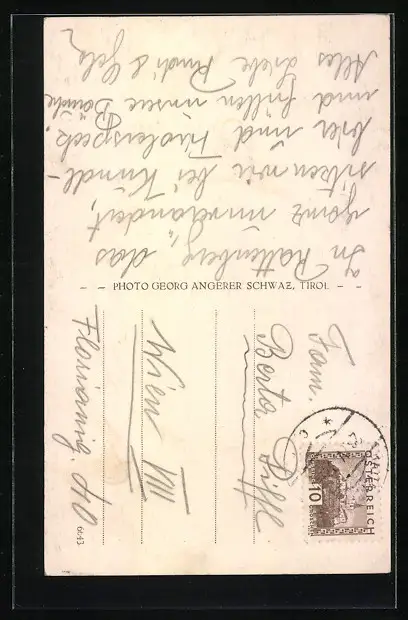 In Rattenberg, das
ganz umrandert,
sitzen wir bei Kundl-
bier und Tirolerspeck
und füllen unsere Bäuche
Alles Liebe Rudi & Gele
PHOTO GEORG ANGERER SCHWAZ, TIROL
Fam.
Berta
Wien VIII
Florianig. 40
6643
10
ÖSTERREICH